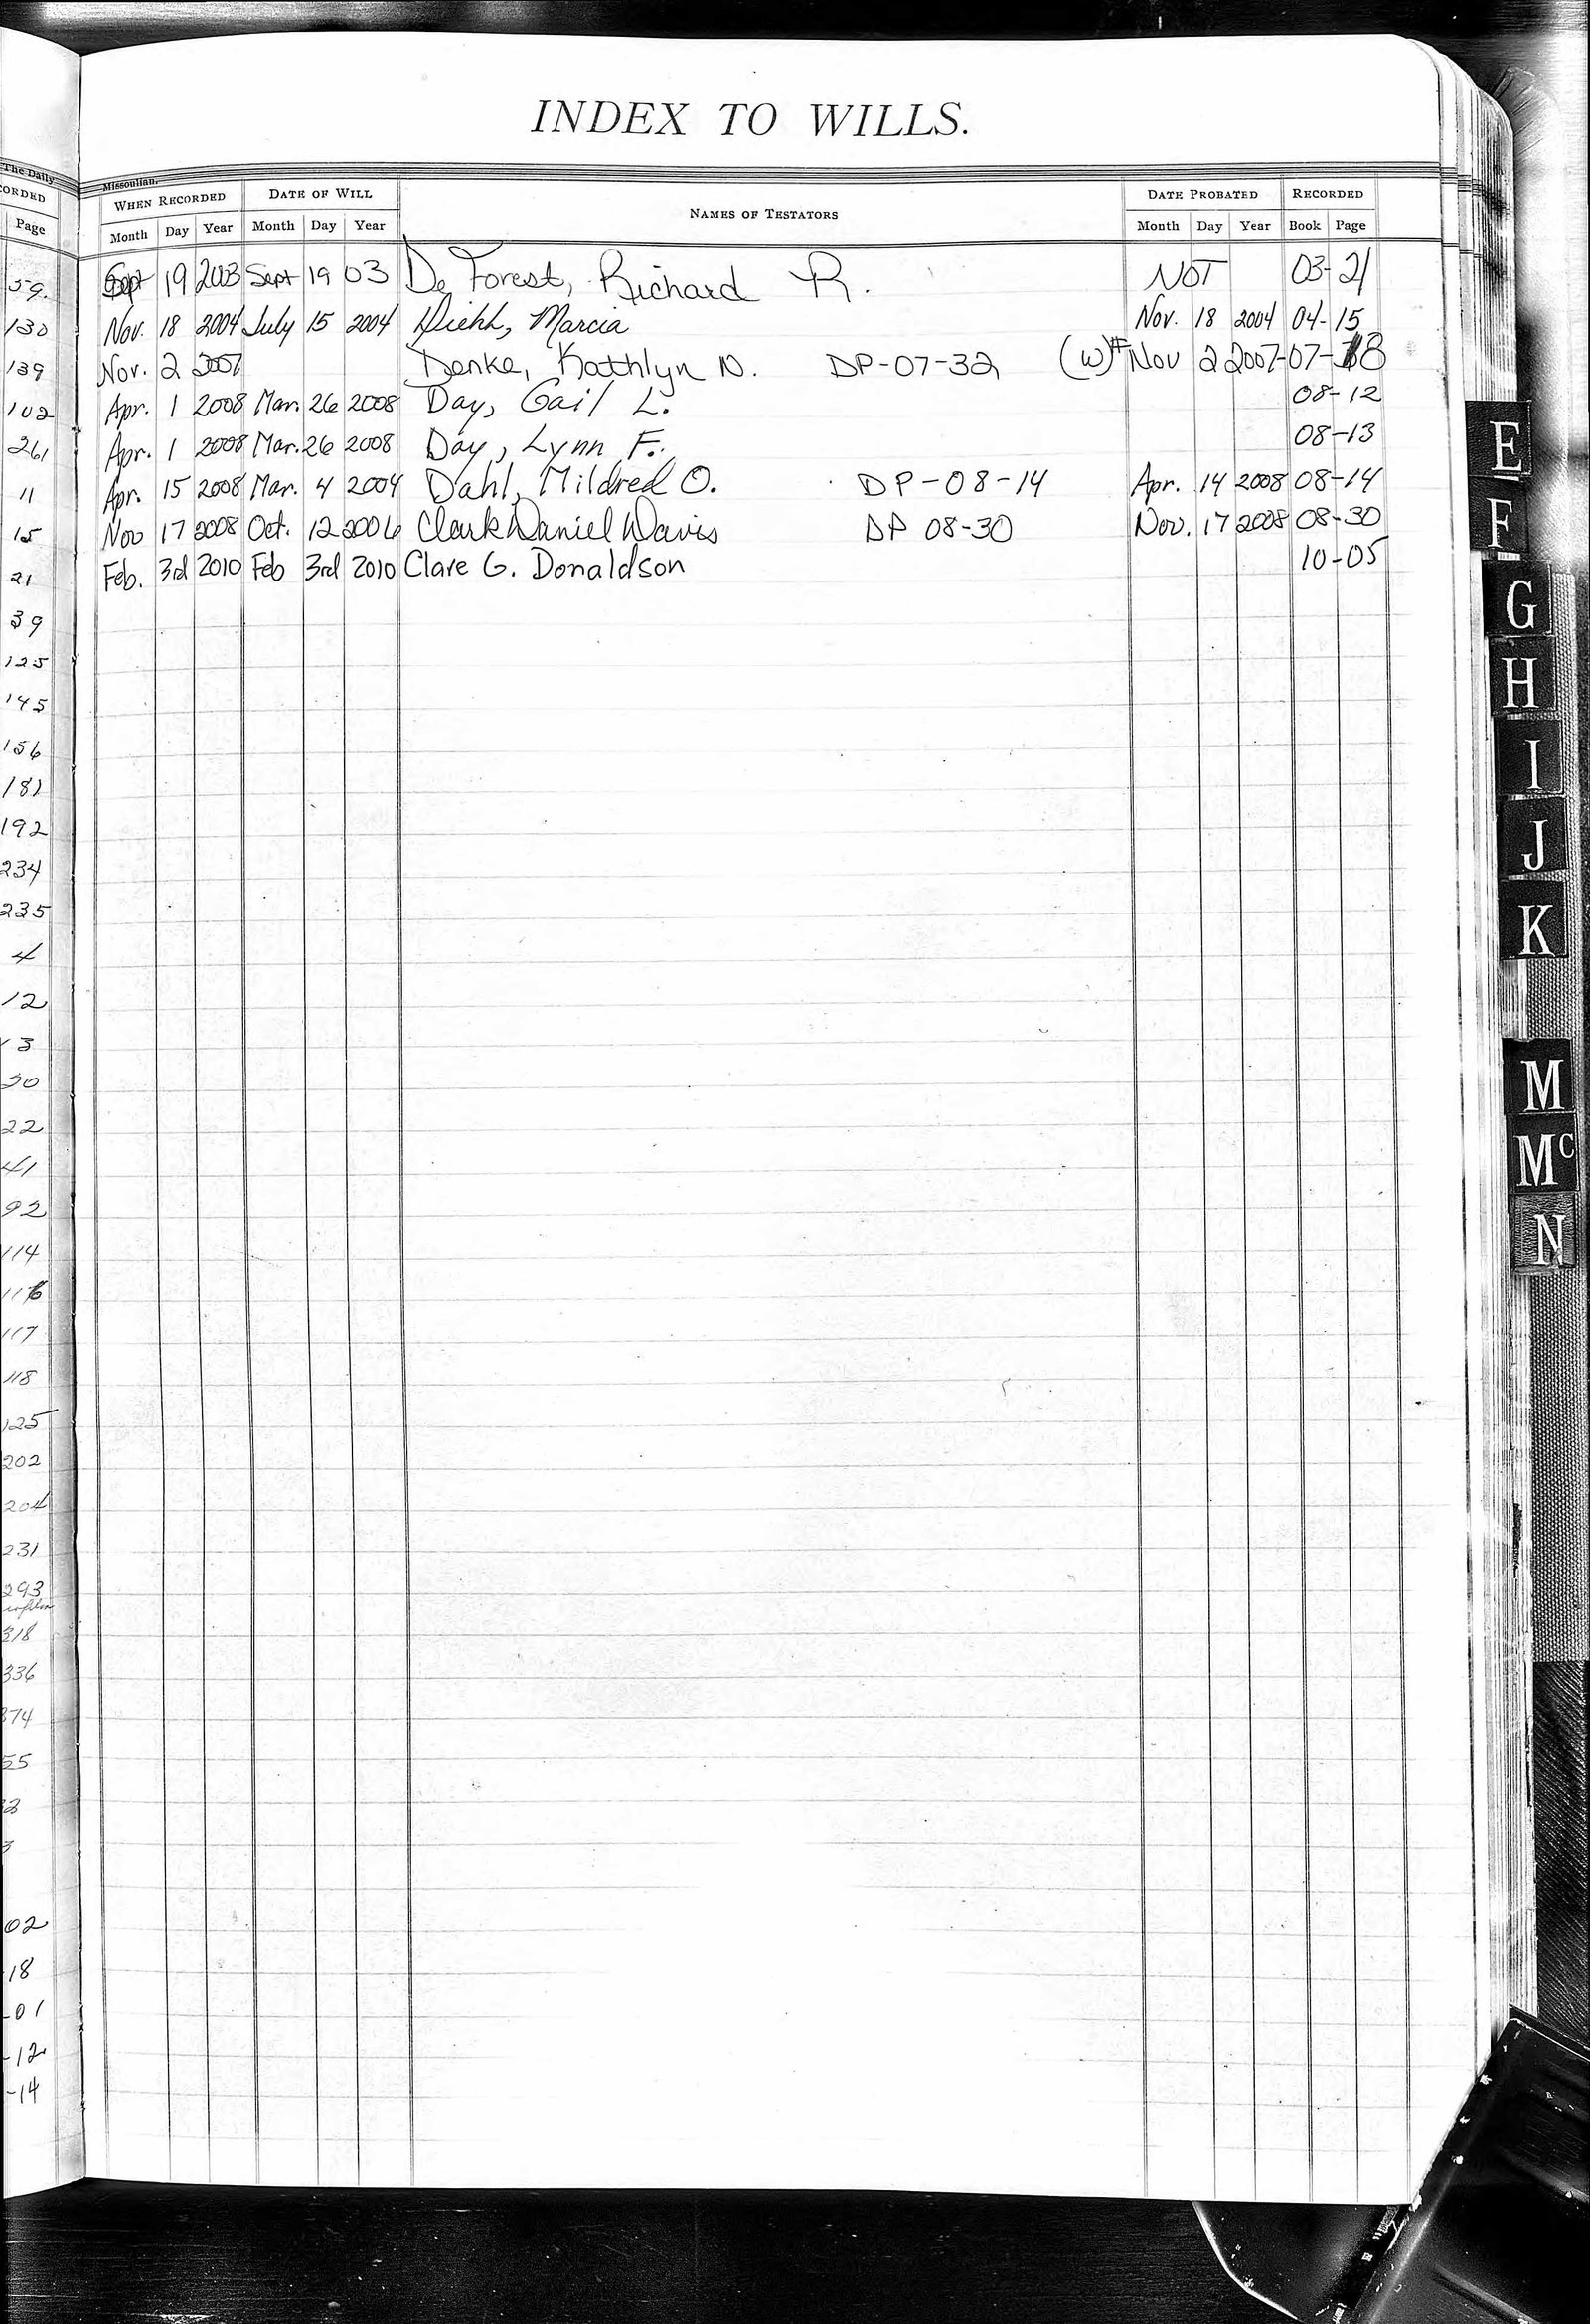 INDEX TO WILLS.
The Daily Missoulian.
WHEN RECORDED DATE OF WILL NAMES OF TESTATORS DATE PROBATED RECORDED
Month Day Year Month Day Year Month Day Year Book Page
Sept 19 2003 Sept 19 03 De Forest, Richard R. NOT 03-21
Nov. 18 2004 July 15 2004 Diehl, Marcia Nov. 18 2004 04-15
Nov. 2 2007 Denke, Kathlyn N. DP-07-32 (W)# Nov 2 2007 07-18
Apr. 1 2008 Mar. 26 2008 Day, Gail L. 08-12
Apr. 1 2008 Mar. 26 2008 Day, Lynn F. 08-13
Apr. 15 2008 Mar. 4 2004 Dahl, Mildred O. DP-08-14 Apr. 14 2008 08-14
Nov 17 2008 Oct. 12 2006 Clark Daniel Davis DP 08-30 Nov. 17 2008 08-30
Feb. 3rd 2010 Feb 3rd 2010 Clare G. Donaldson 10-05
ORDED
Page
59.
130
139
102
261
11
15
21
39
125
145
156
181
192
234
235
4
12
13
30
22
41
92
114
116
117
118
125
202
204
231
293
318
336
374
55
02
-18
-01
-12
-14
E
F
G
H
I
J
K
M
Mc
N